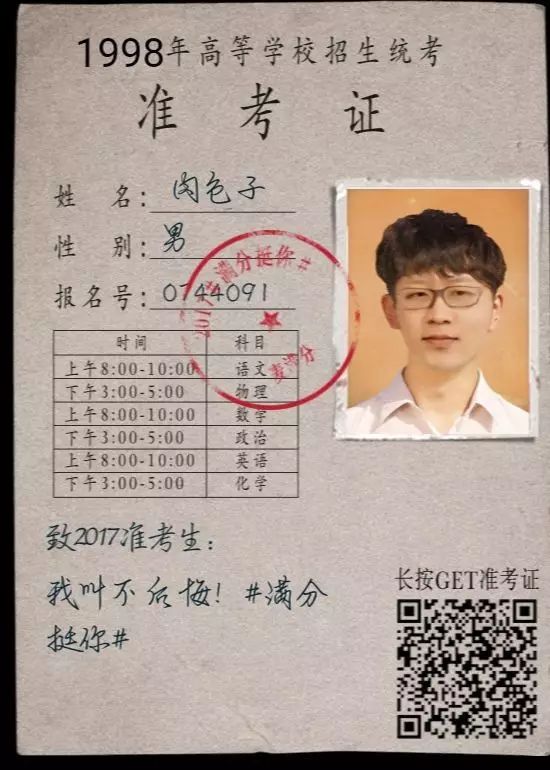 1998年高等学校招生统考
准 考 证
姓 名: 肉色子
性 别: 男
报名号: 0744091
2017#满分挺你#
麦当分
时间 科目
上午8:00-10:00 语文
下午3:00-5:00 物理
上午8:00-10:00 数学
下午3:00-5:00 政治
上午8:00-10:00 英语
下午3:00-5:00 化学
致2017准考生:
我叫不后悔! #满分
挺你#
长按GET准考证